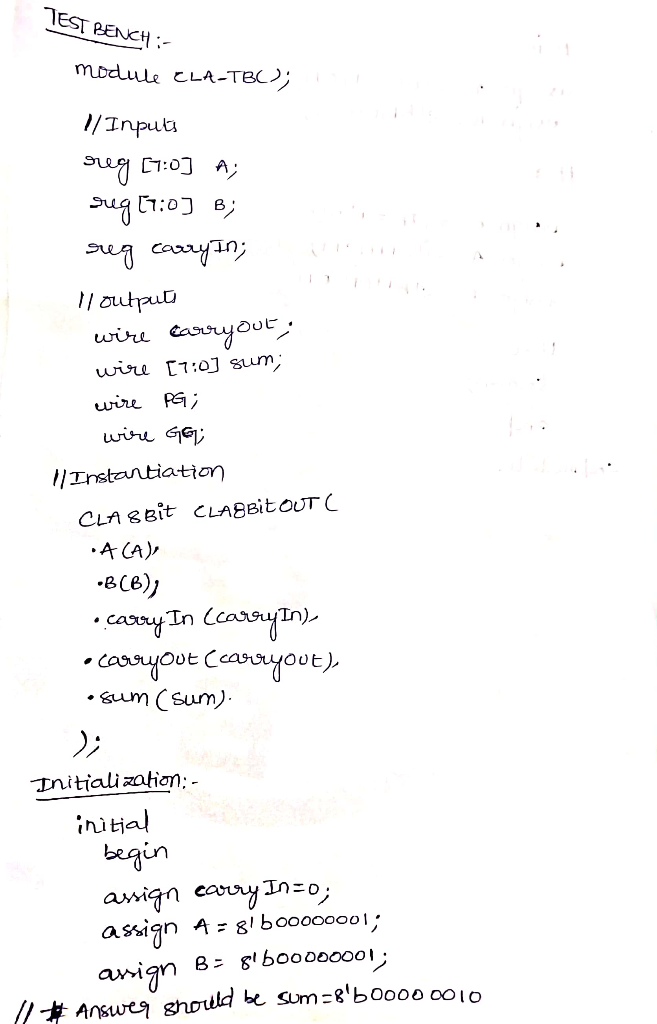 TEST BENCH :-
module CLA-TB();
// Inputs
reg [7:0] A;
reg [7:0] B;
reg carryIn;
// outputs
wire carryout;
wire [7:0] sum;
wire PG;
wire GG;
// Instantiation
CLA8Bit CLA8BitOUT (
.A (A),
.B (B),
.carryIn (carryIn),
.carryout (carryout),
.sum (sum).
);
Initialization:-
initial
begin
assign carryIn=0;
assign A = 8'b00000001;
assign B = 8'b00000001;
// # Answer should be sum=8'b0000 0010